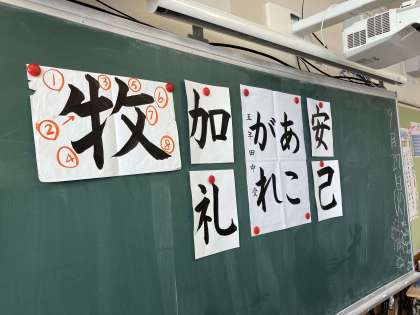 ① ② ③ ④ ⑤ ⑥ ⑦ ⑧
牧
加
礼
あこ
がれ
五年 田中
安
己